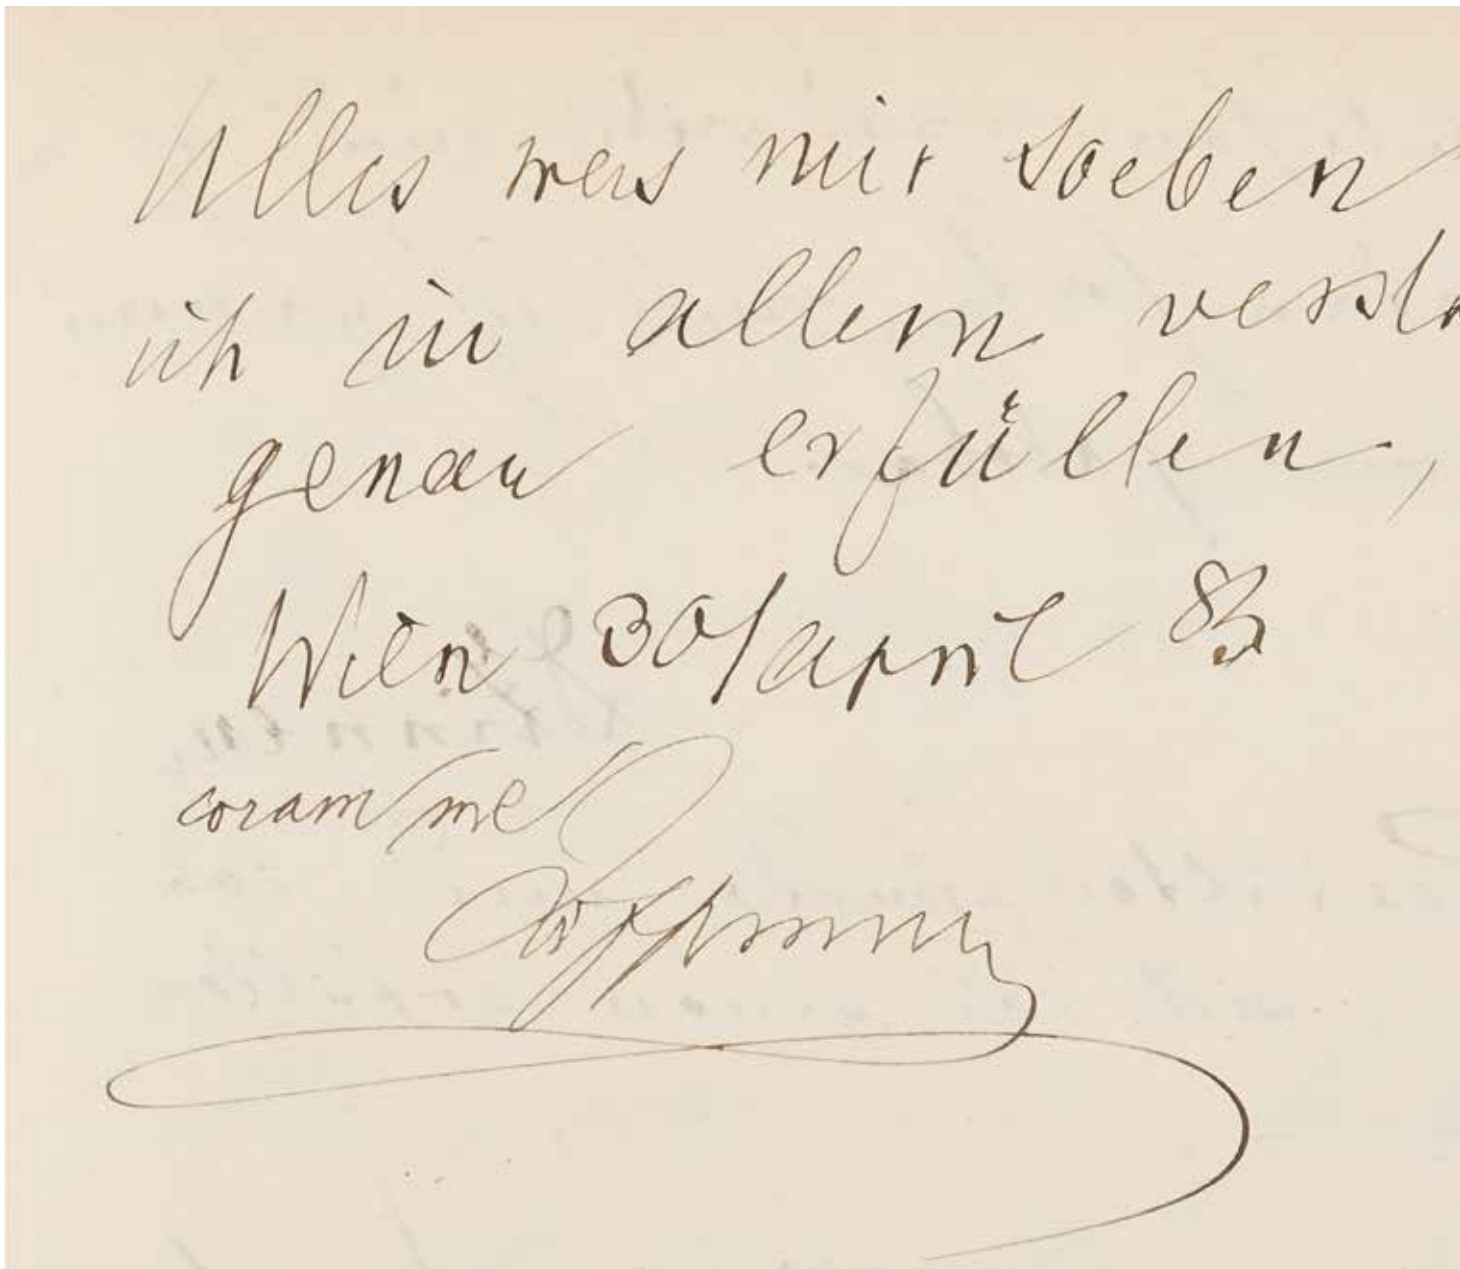 Alles was mir soeben
ich in allem versta
genau erfüllen,
Wien 30/April 83
coram me